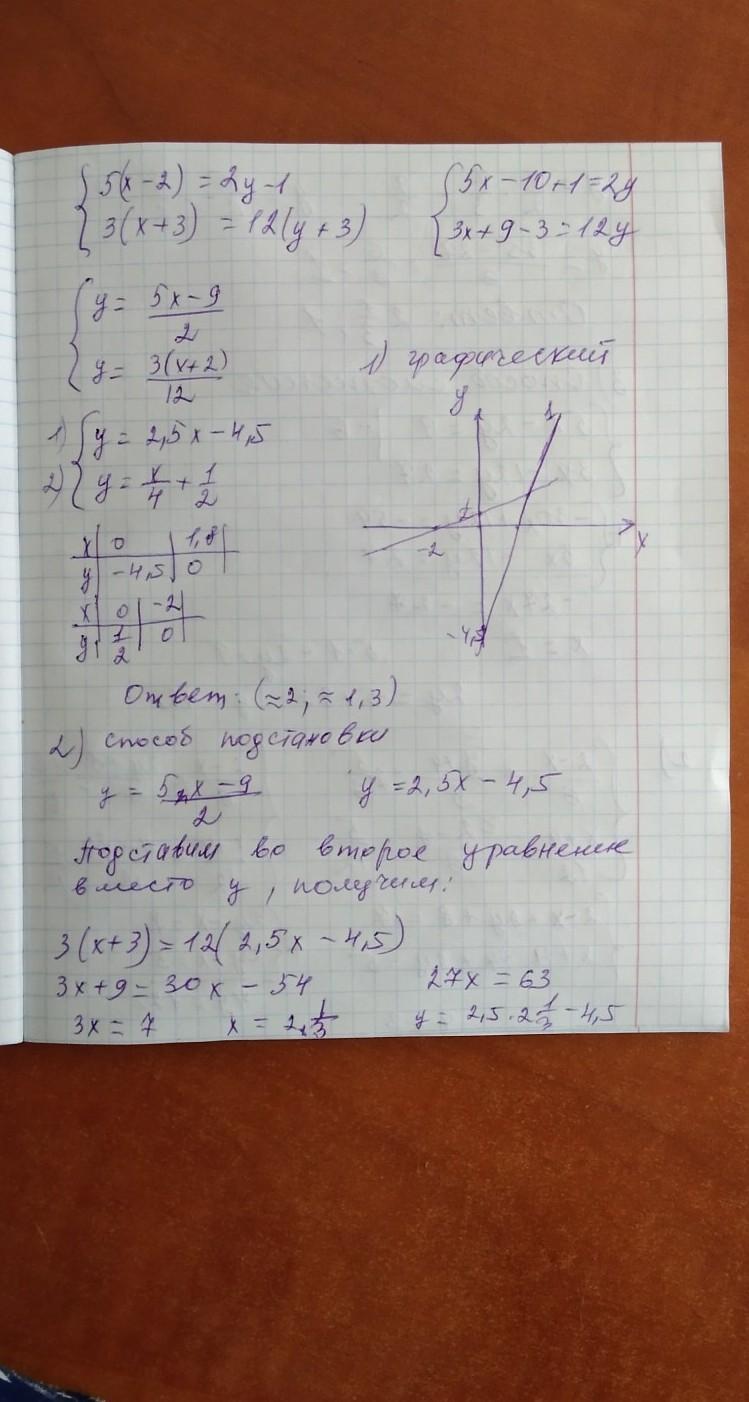 5(x-2) = 2y-1
3(x+3) = 12(y+3)
5x-10+1=2y
3x+9-3=12y
y= (5x-9)/2
y= 3(x+2)/12
1) графический
1) y = 2,5x-4,5
2) y = x/4 + 1/2
y
1
x
-2
-4,5
x | 0 | 1,8
y | -4,5 | 0
x | 0 | -2
y | 1/2 | 0
Ответ: (≈2; ≈1,3)
2) способ подстановки
y = (5x-9)/2 y=2,5x-4,5
Подставим во второе уравнение
вместо y, получим:
3(x+3)=12(2,5x-4,5)
3x+9=30x-54 27x=63
3x=7 x=2 1/3 y= 2,5·2 1/3 -4,5